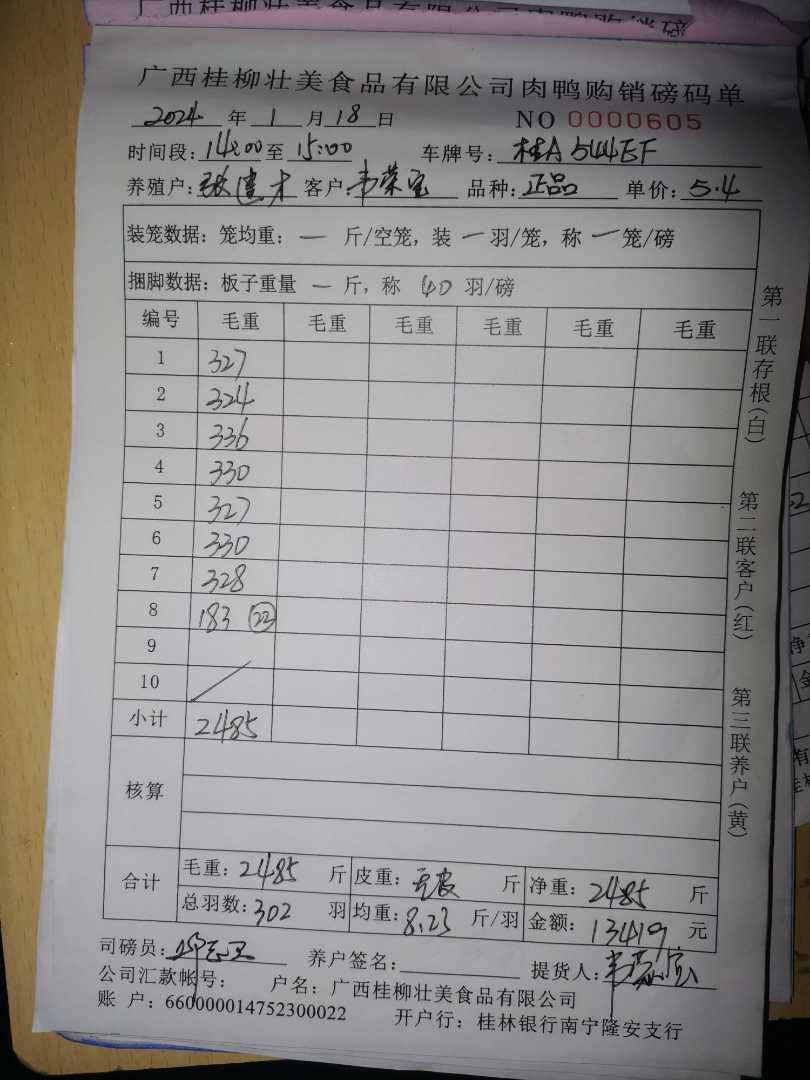 广西桂柳壮美食品有限公司肉鸭购销磅码单
2024 年 1 月 18 日 NO 0000605
时间段: 14:00 至 15:00 车牌号: 桂A 544EF
养殖户: 张建才 客户: 韦荣宝 品种: 正品 单价: 5.4
装笼数据: 笼均重: — 斤/空笼, 装 — 羽/笼, 称 — 笼/磅
捆脚数据: 板子重量 — 斤, 称 40 羽/磅
编号 毛重 毛重 毛重 毛重 毛重 毛重
1 327
2 324
3 336
4 330
5 327
6 330
7 328
8 183 (23)
9
10
小计 2485
核算
合计 毛重: 2485 斤 皮重: 无皮 斤 净重: 2485 斤
总羽数: 302 羽 均重: 8.23 斤/羽 金额: 13419 元
司磅员: 养户签名: 提货人: 韦荣宝
公司汇款帐号: 户名: 广西桂柳壮美食品有限公司
账 户: 660000014752300022 开户行: 桂林银行南宁隆安支行
第一联存根(白)
第二联客户(红)
第三联养户(黄)